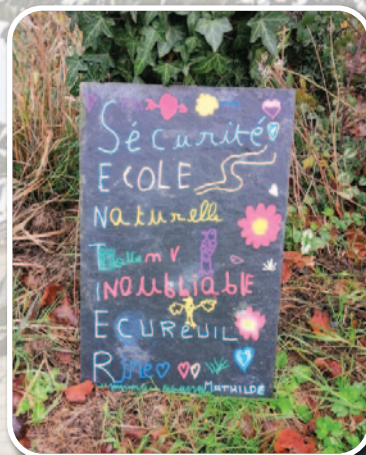 Sécurité
ECOLE
Naturelle
INOUbLIAblE
ECUREUIL
MATHILDE